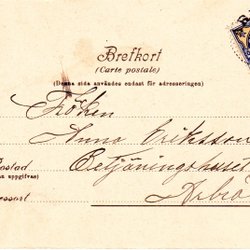 Brefkort
(Carte postale)
(Denna sida användes endast för adresseringen)
Fröken
Anna Eriksson
Betjäningshuset
ostad
n uppgifvas)
Arbrå
ressort